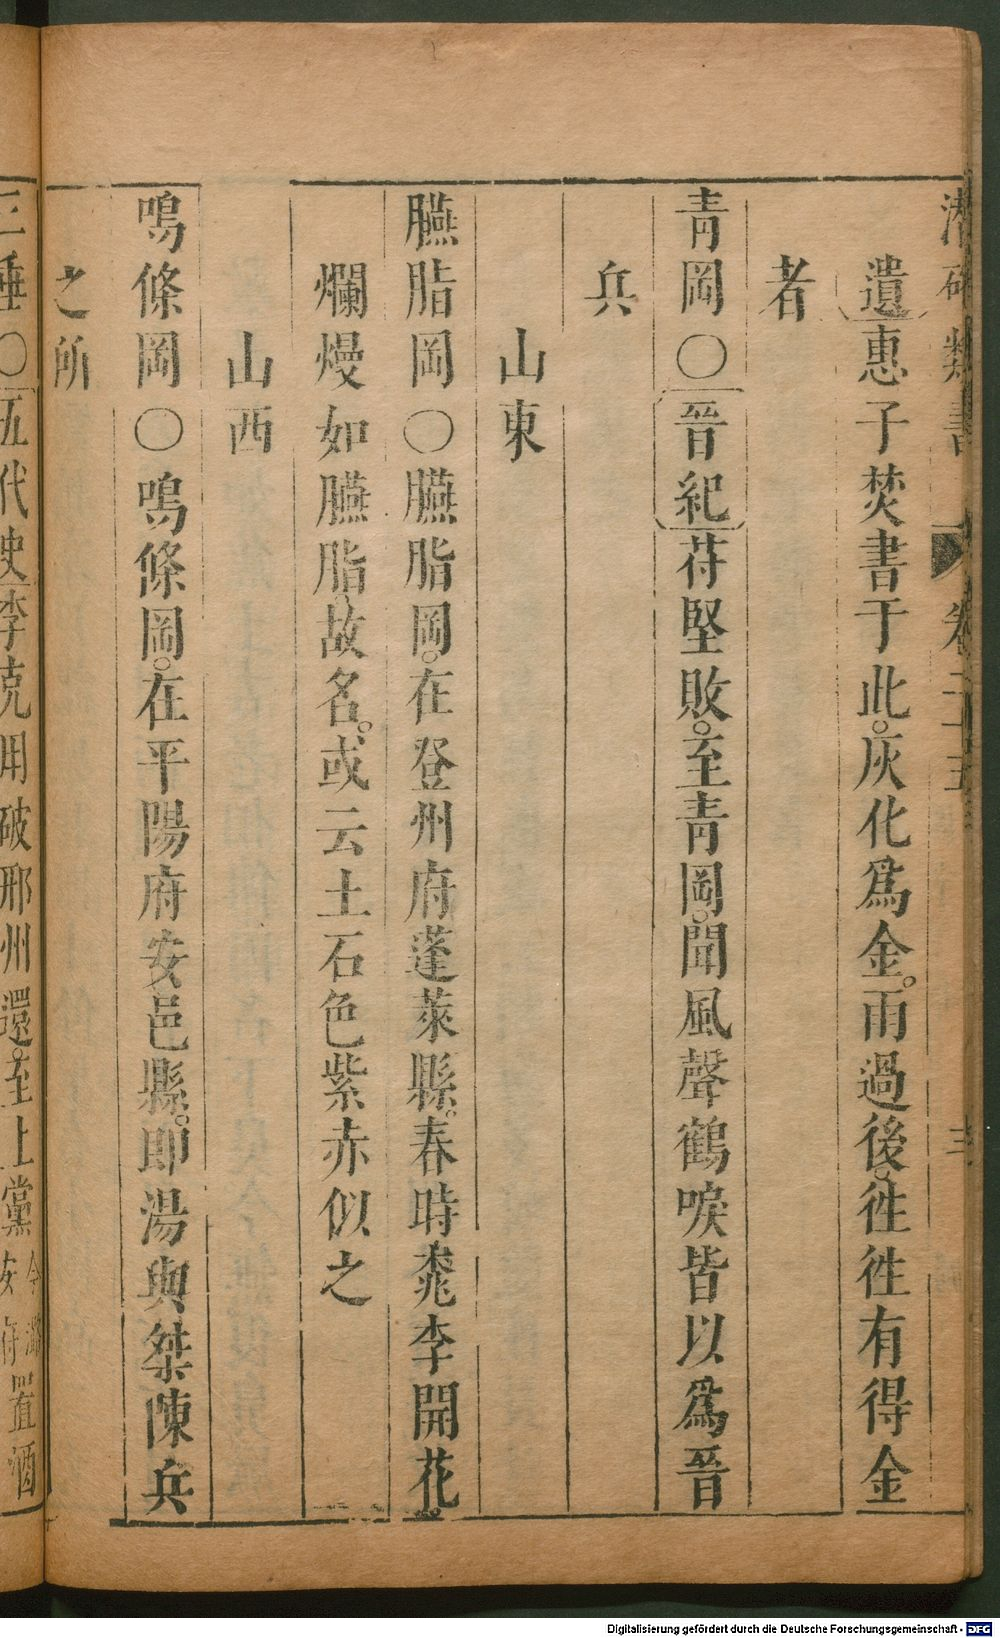 潛確類書 卷二十五 三
遺惠子焚書于此。灰化爲金。雨過後。徃徃有得金
者
靑岡〇晉紀苻堅敗。至靑岡。聞風聲鶴唳皆以爲晉
兵
山東
臙脂岡〇臙脂岡。在登州府蓬萊縣。春時桃李開花。
爛熳如臙脂。故名。或云土石色紫赤似之
山西
鳴條岡〇鳴條岡。在平陽府安邑縣。即湯與桀陳兵
之所
三垂〇五代史李克用破邢州還。至上黨今潞安府置酒
Digitalisierung gefördert durch die Deutsche Forschungsgemeinschaft - DFG